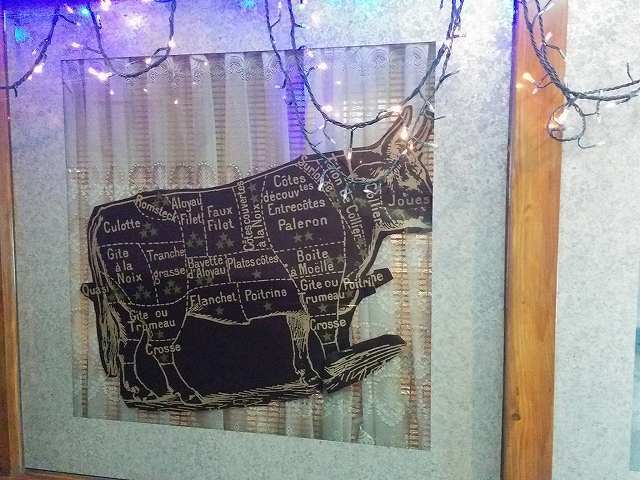 Culotte
Romsteck
Aloyau
Filet
Faux
Filet
Côtes couvertes
à la Noix
Côtes
découvtes
Entrecôtes
Paleron
Surlonge
Collier
Collier
Joues
Gîte
à la
Noix
Tranche
grasse
Bavette
d'Aloyau
Plates côtes
Boîte
à Moëlle
Quasi
Flanchet
Poitrine
Gîte ou
Trumeau
Poitrine
Gîte ou
Trumeau
Crosse
Crosse